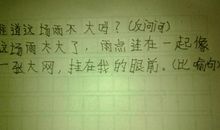 难道这场雨不大吗？（反问句）
这场雨太大了，雨点连在一起像
一张大网，挂在我的眼前。（比喻句）